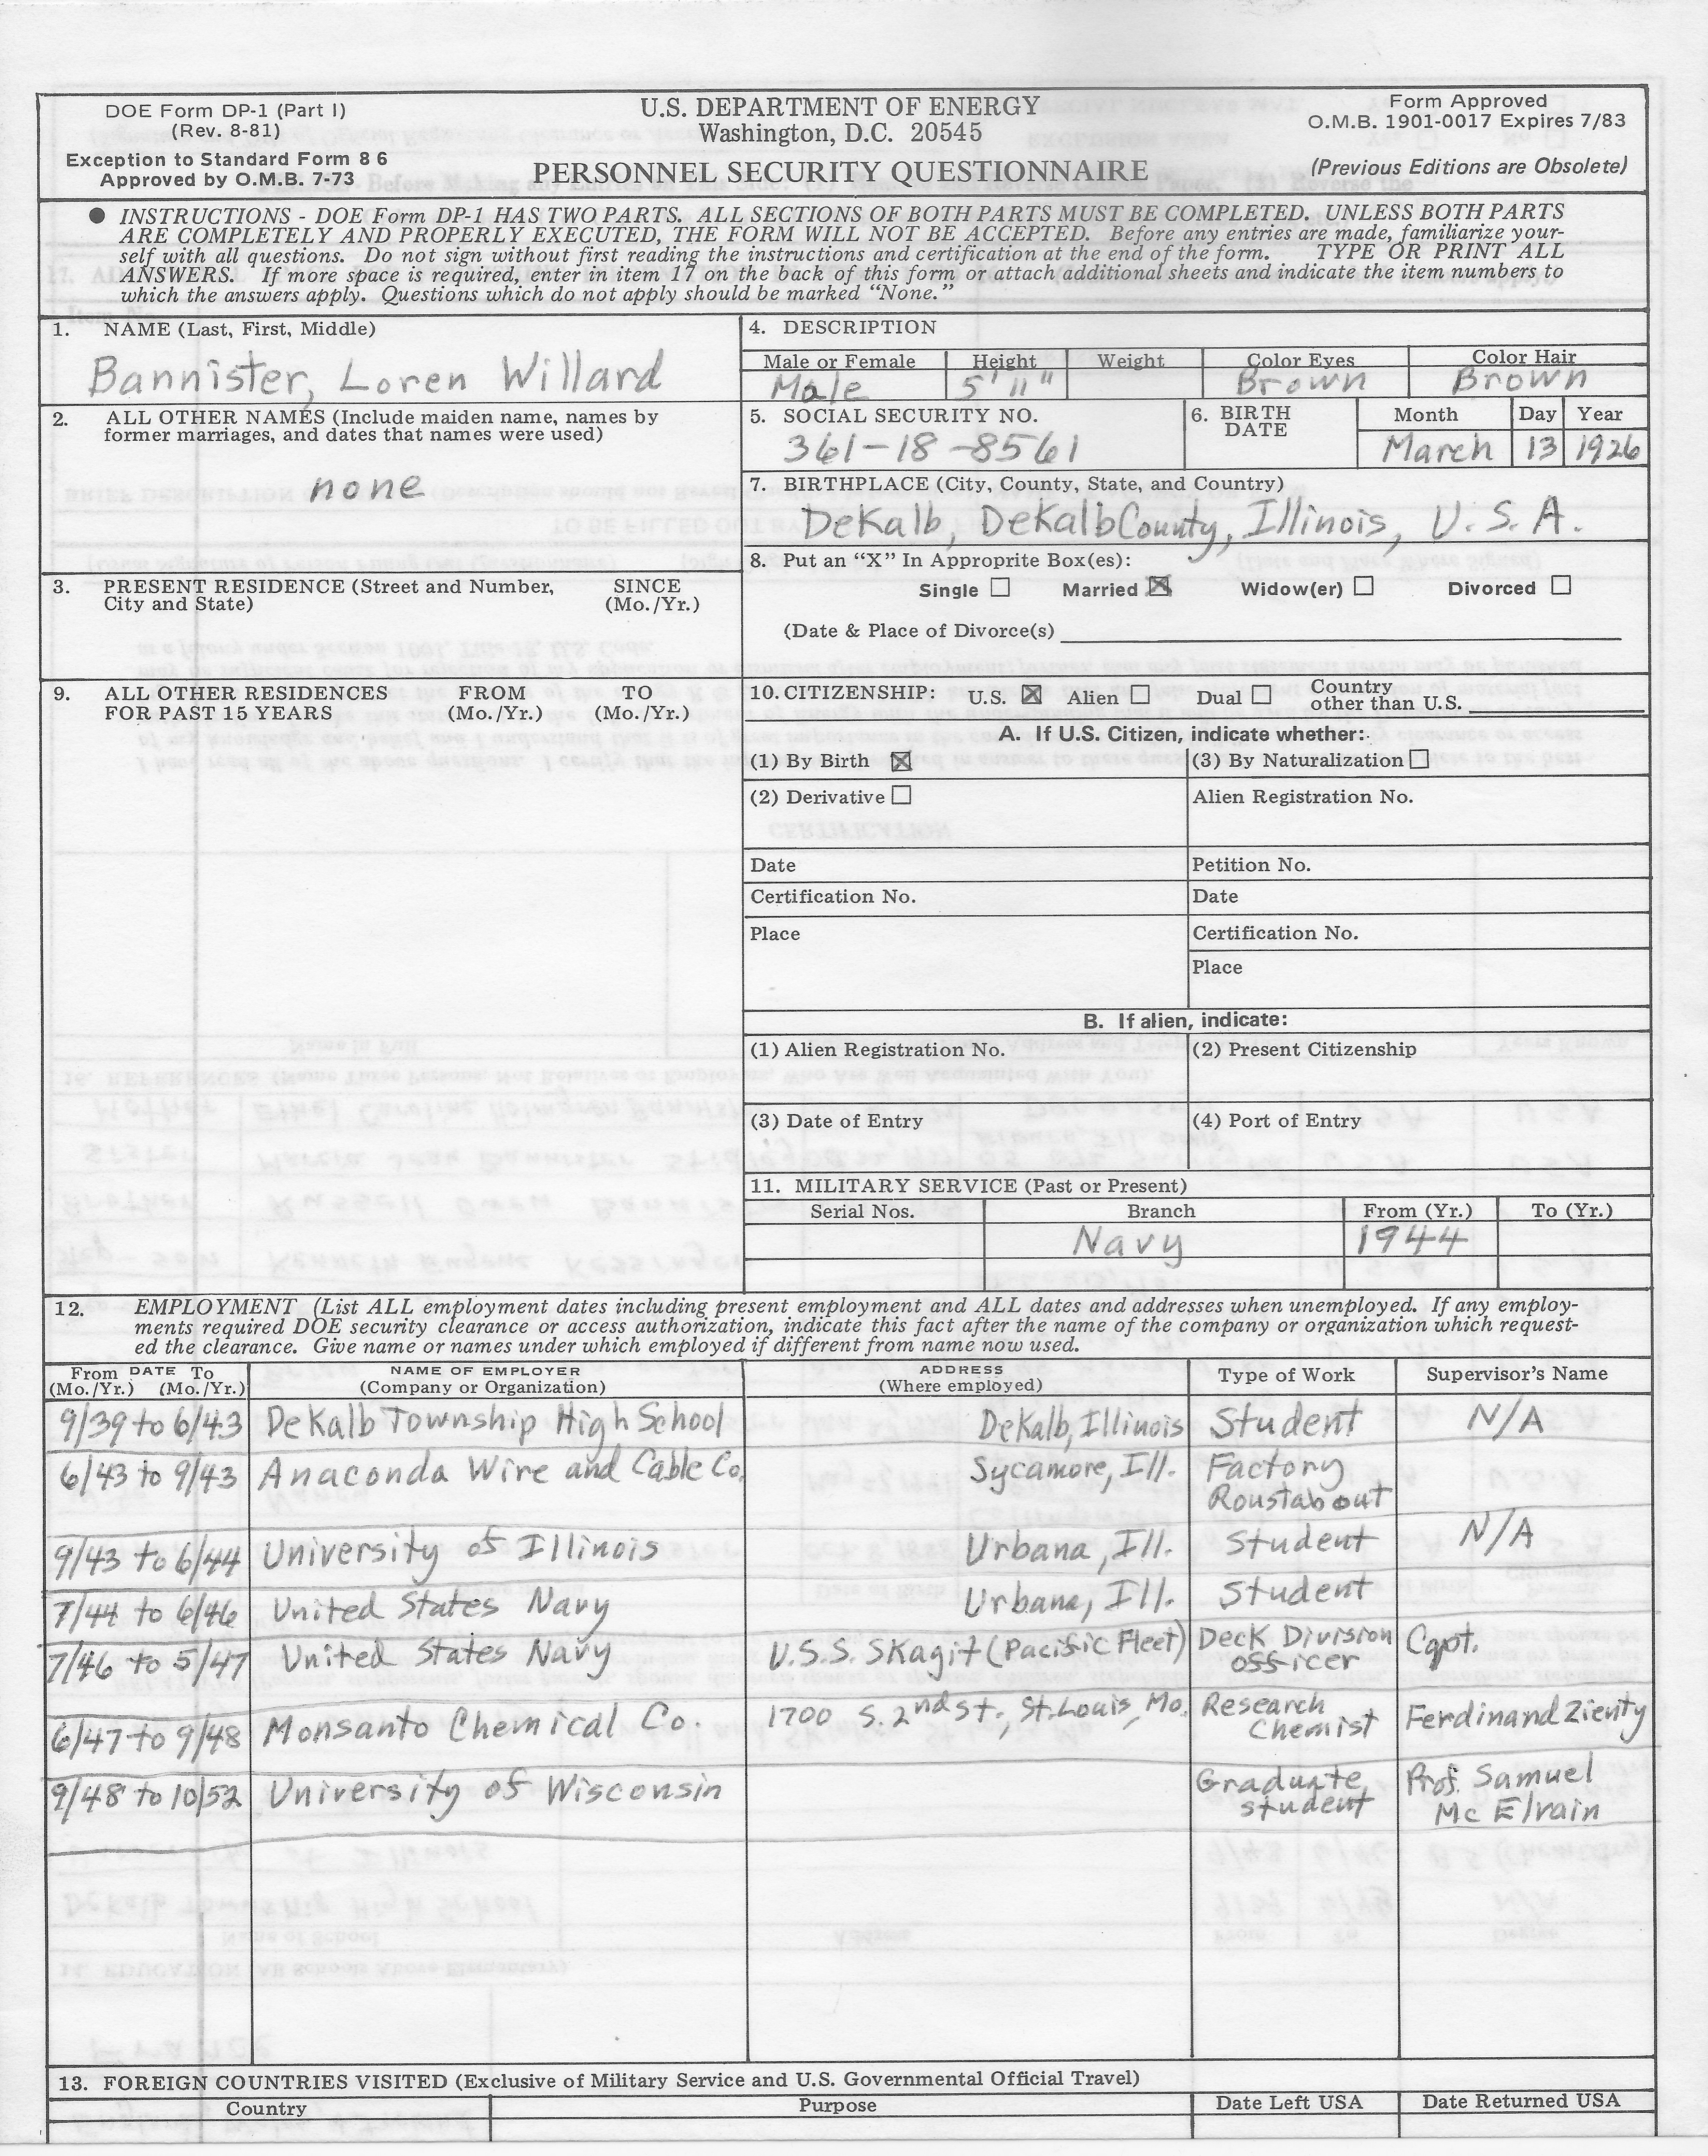 DOE Form DP-1 (Part I)
(Rev. 8-81)
Exception to Standard Form 8 6
Approved by O.M.B. 7-73
U.S. DEPARTMENT OF ENERGY
Washington, D.C. 20545
PERSONNEL SECURITY QUESTIONNAIRE
Form Approved
O.M.B. 1901-0017 Expires 7/83
(Previous Editions are Obsolete)
● INSTRUCTIONS - DOE Form DP-1 HAS TWO PARTS. ALL SECTIONS OF BOTH PARTS MUST BE COMPLETED. UNLESS BOTH PARTS
ARE COMPLETELY AND PROPERLY EXECUTED, THE FORM WILL NOT BE ACCEPTED. Before any entries are made, familiarize your-
self with all questions. Do not sign without first reading the instructions and certification at the end of the form. TYPE OR PRINT ALL
ANSWERS. If more space is required, enter in item 17 on the back of this form or attach additional sheets and indicate the item numbers to
which the answers apply. Questions which do not apply should be marked “None.”
1. NAME (Last, First, Middle)
Bannister, Loren Willard
4. DESCRIPTION
Male or Female Height Weight Color Eyes Color Hair
Male 5' 11" Brown Brown
2. ALL OTHER NAMES (Include maiden name, names by
former marriages, and dates that names were used)
none
5. SOCIAL SECURITY NO.
361-18-8561
6. BIRTH
DATE
Month Day Year
March 13 1926
7. BIRTHPLACE (City, County, State, and Country)
DeKalb, DeKalb County, Illinois, U.S.A.
8. Put an “X” In Approprite Box(es):
Single ☐ Married ☒ Widow(er) ☐ Divorced ☐
(Date & Place of Divorce(s)
3. PRESENT RESIDENCE (Street and Number, SINCE
City and State) (Mo./Yr.)
9. ALL OTHER RESIDENCES FROM TO
FOR PAST 15 YEARS (Mo./Yr.) (Mo./Yr.)
10. CITIZENSHIP: U.S. ☒ Alien ☐ Dual ☐ Country
other than U.S.
A. If U.S. Citizen, indicate whether:
(1) By Birth ☒ (3) By Naturalization ☐
(2) Derivative ☐ Alien Registration No.
Date Petition No.
Certification No. Date
Place Certification No.
Place
B. If alien, indicate:
(1) Alien Registration No. (2) Present Citizenship
(3) Date of Entry (4) Port of Entry
11. MILITARY SERVICE (Past or Present)
Serial Nos. Branch From (Yr.) To (Yr.)
Navy 1944
12. EMPLOYMENT (List ALL employment dates including present employment and ALL dates and addresses when unemployed. If any employ-
ments required DOE security clearance or access authorization, indicate this fact after the name of the company or organization which request-
ed the clearance. Give name or names under which employed if different from name now used.
From DATE To NAME OF EMPLOYER ADDRESS Type of Work Supervisor's Name
(Mo./Yr.) (Mo./Yr.) (Company or Organization) (Where employed)
9/39 to 6/43 DeKalb Township High School DeKalb, Illinois Student N/A
6/43 to 9/43 Anaconda Wire and Cable Co. Sycamore, Ill. Factory
Roustabout
9/43 to 6/44 University of Illinois Urbana, Ill. Student N/A
7/44 to 6/46 United States Navy Urbana, Ill. Student
7/46 to 5/47 United States Navy U.S.S. Skagit (Pacific Fleet) Deck Division Capt.
officer
6/47 to 9/48 Monsanto Chemical Co. 1700 S. 2nd St., St. Louis, Mo. Research Ferdinand Zienty
Chemist
9/48 to 10/52 University of Wisconsin Graduate Prof. Samuel
student McElvain
13. FOREIGN COUNTRIES VISITED (Exclusive of Military Service and U.S. Governmental Official Travel)
Country Purpose Date Left USA Date Returned USA